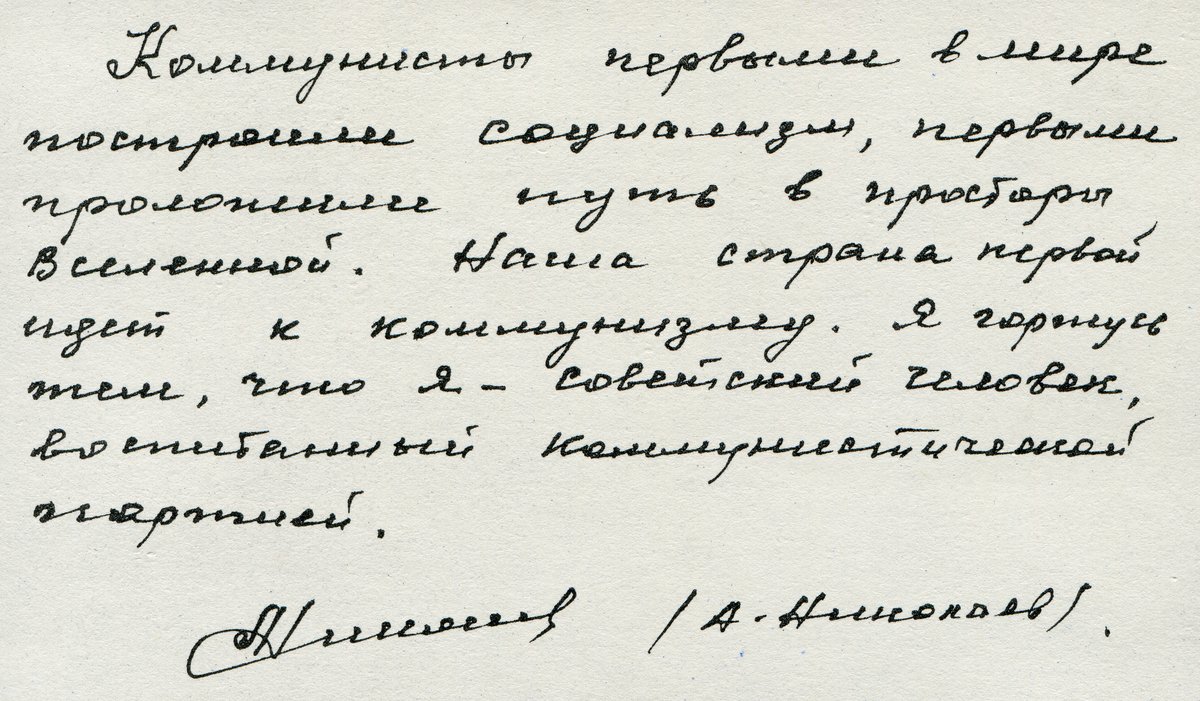 Коммунисты первыми в мире
построили социализм, первыми
проложили путь в просторы
Вселенной. Наша страна первой
идет к коммунизму. Я горжусь
тем, что я - советский человек,
воспитанный коммунистической
партией.
АНиколаев (А. Николаев).